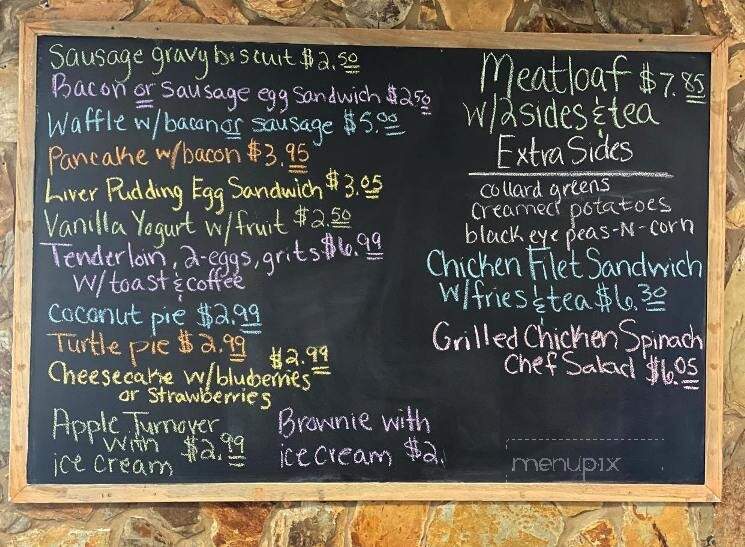 Sausage gravy biscuit $2.50
Bacon or sausage egg Sandwich $2.50
Waffle w/bacon or sausage $5.00
Pancake w/bacon $3.95
Liver Pudding Egg Sandwich $3.05
Vanilla Yogurt w/fruit $2.50
Tenderloin, 2-eggs, grits $6.99
w/toast & coffee
Coconut pie $2.99
Turtle pie $2.99
$2.99
Cheesecake w/blueberries
or Strawberries
Apple Turnover
with $2.99
ice cream
Brownie with
ice cream $2.
Meatloaf $7.85
w/2 sides & tea
Extra Sides
collard greens
creamed potatoes
black eye peas-N-corn
Chicken Filet Sandwich
w/fries & tea $6.30
Grilled Chicken Spinach
Chef Salad $6.05
menupix